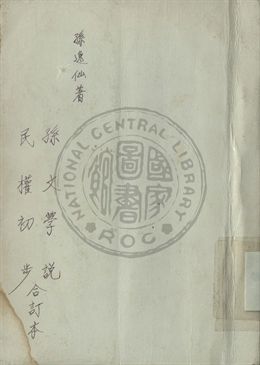 孫逸仙著
孫文學說
民權初步合訂本
NATIONAL CENTRAL LIBRARY
ROC
國家圖書館